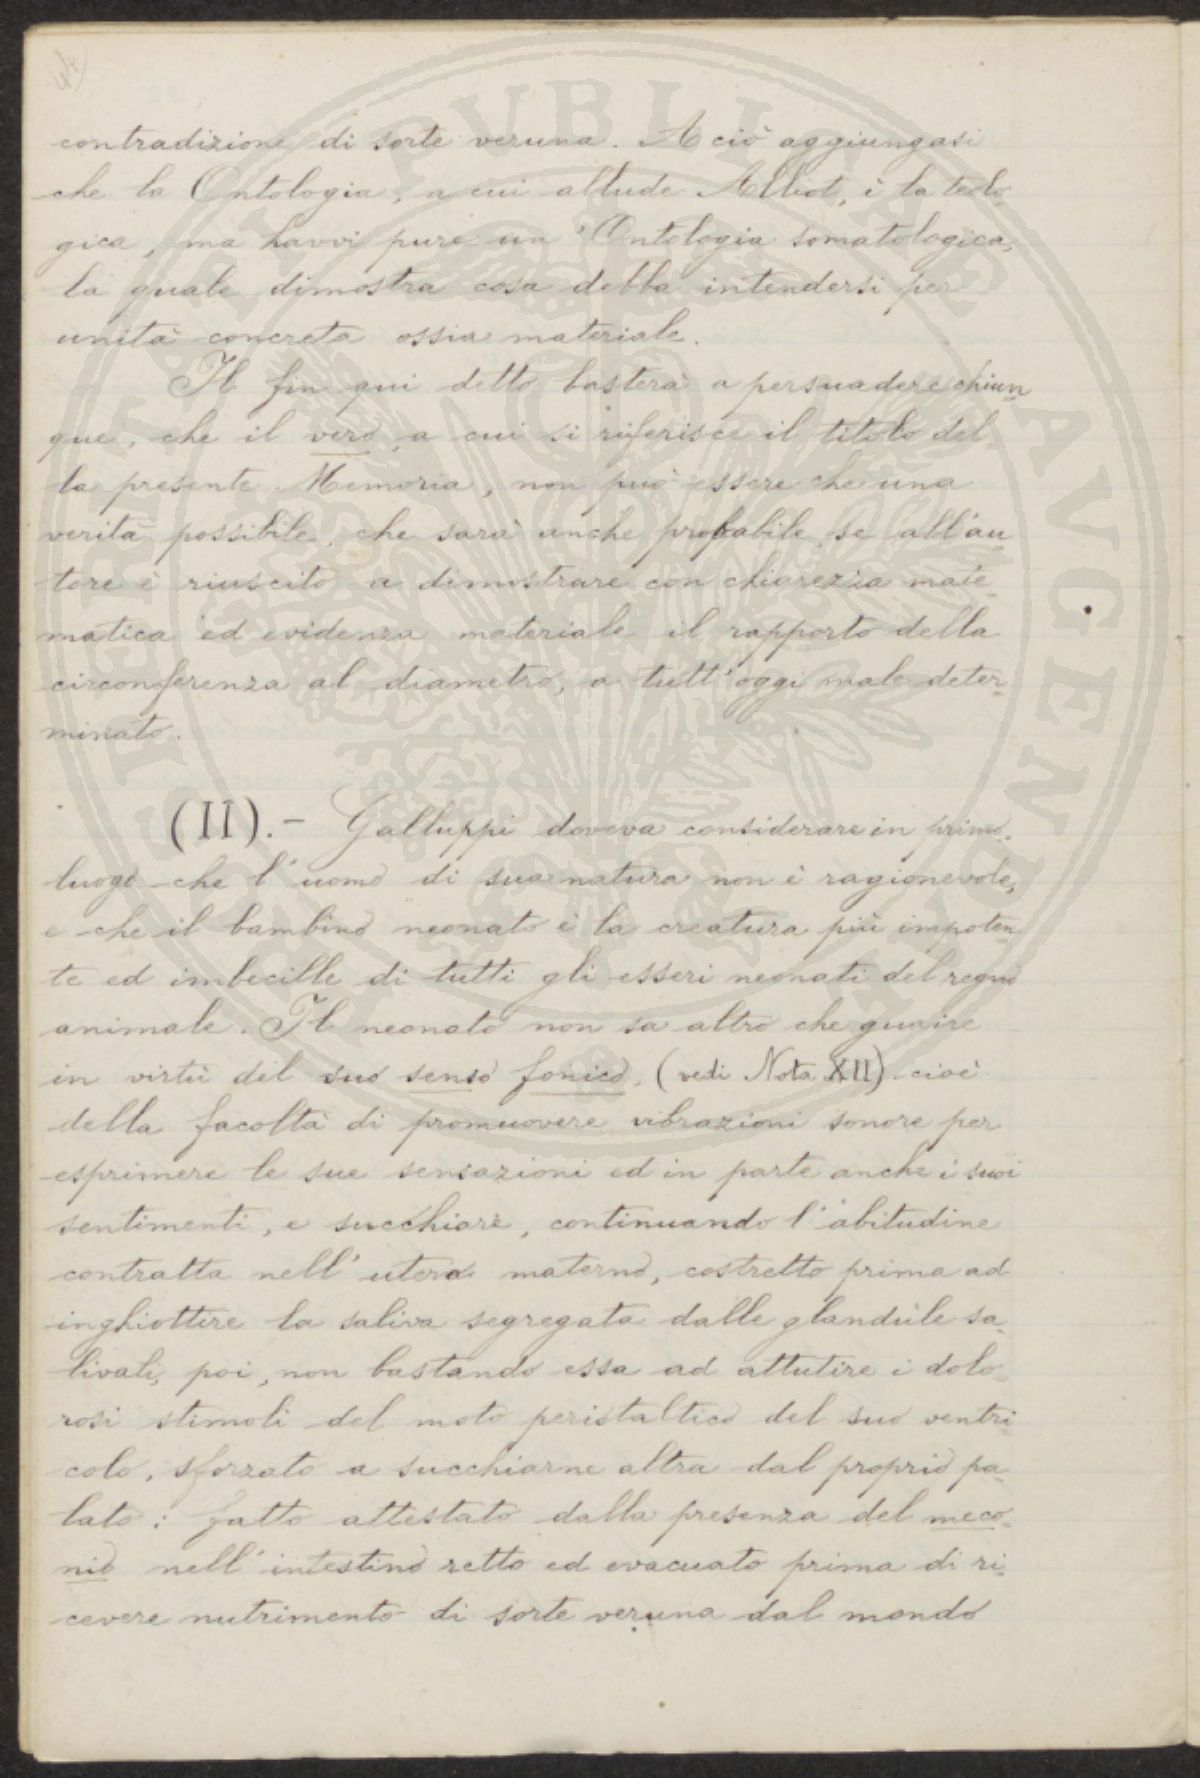 contradizione di sorte veruna. A ciò aggiungasi
che la Ontologia, a cui allude Alliot, è la teolo
gica, ma havvi pure un' Ontologia somatologica,
la quale dimostra cosa debba intendersi per
unità concreta ossia materiale.
Il fin qui detto basterà a persuadere chiun
que, che il vero, a cui si riferisce il titolo del-
la presente Memoria, non può essere che una
verità possibile, che sarà anche probabile, se all'au
tore è riuscito a dimostrare con chiarezza mate-
matica ed evidenza materiale il rapporto della
circonferenza al diametro, a tutt'oggi male deter-
minato.
(II).- Galluppi doveva considerare in primo-
luogo che l'uomo di sua natura non è ragionevole,
e che il bambino neonato è la creatura più impoten
te ed imbecille di tutti gli esseri neonati del regno
animale. Il neonato non sa altro che guaire
in virtù del suo senso fonico, (vedi Nota XII) cioè
della facoltà di promuovere vibrazioni sonore per
esprimere le sue sensazioni ed in parte anche i suoi
sentimenti, e succhiare, continuando l'abitudine
contratta nell'utero materno, costretto prima ad
inghiottire la saliva segregata dalle glandule sa-
livali, poi, non bastando essa ad attutire i dolo-
rosi stimoli del moto peristaltico del suo ventri-
colo, sforzato a succhiarne altra dal proprio pa-
lato: fatto attestato dalla presenza del meco-
nio nell'intestino retto ed evacuato prima di ri-
cevere nutrimento di sorte veruna dal mondo